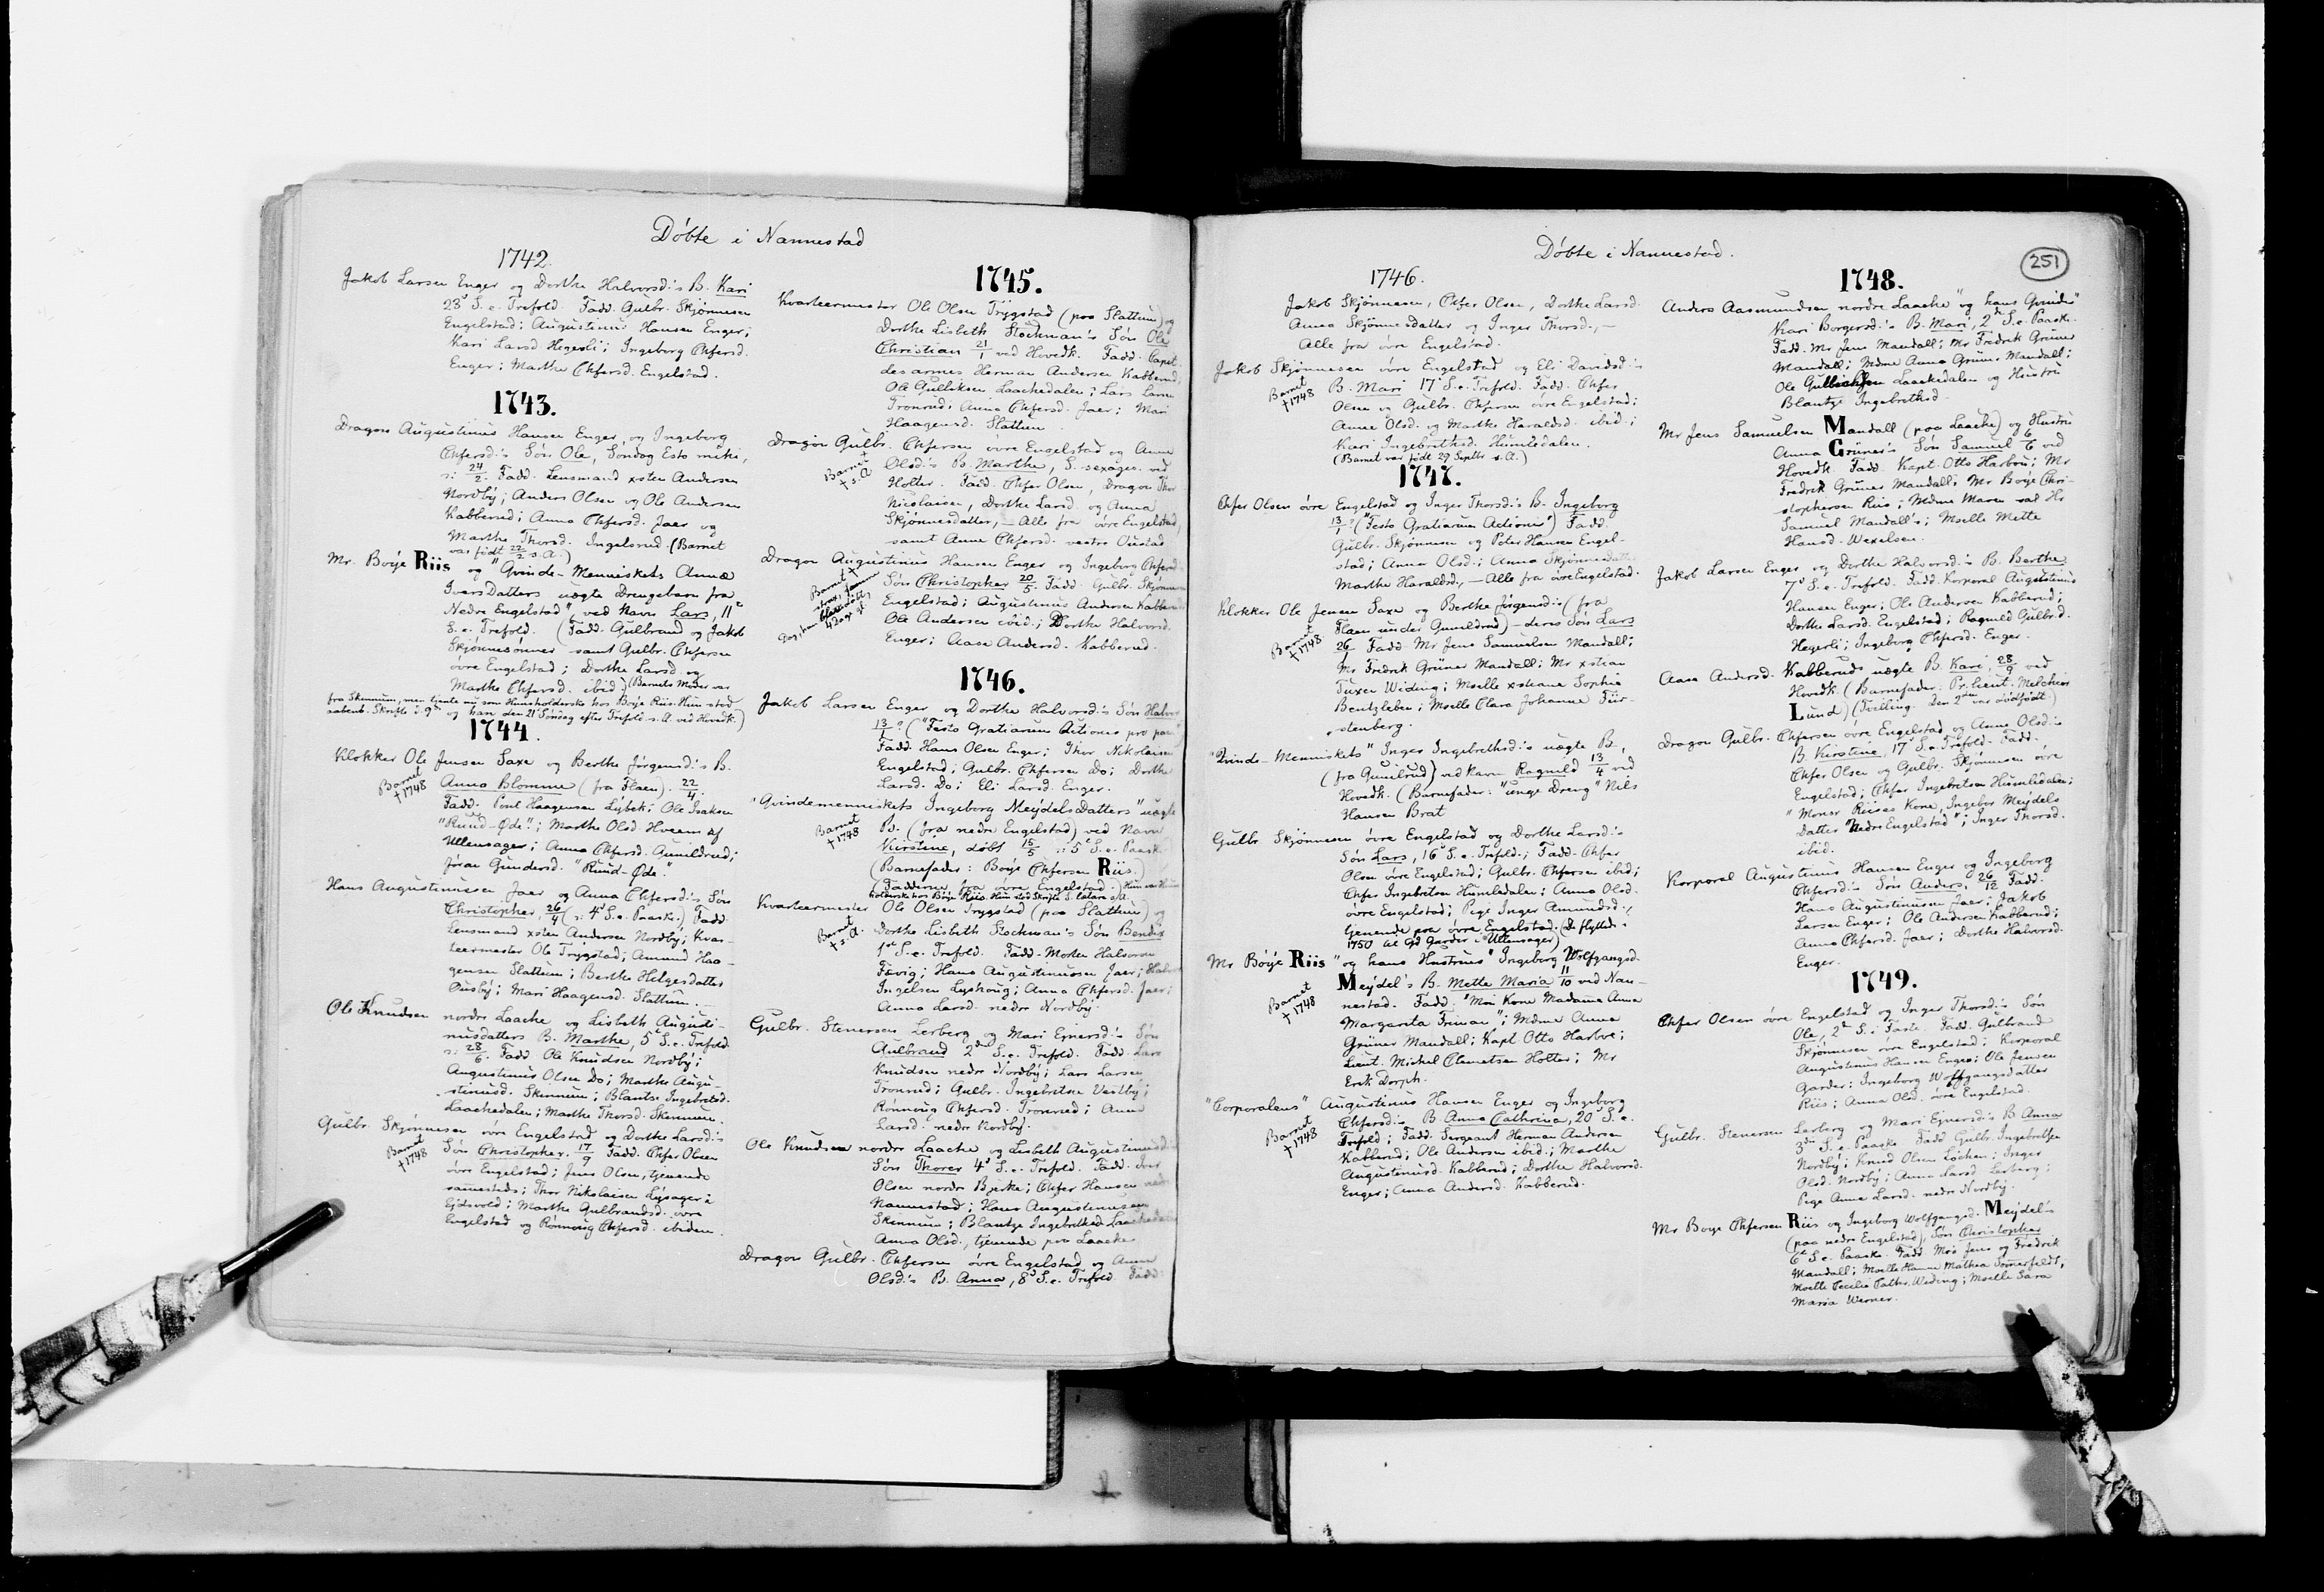 Döbte i Nannestad
1742.
Jakob Larsen Enger og Dorthe Halvorsd.'s B. Kari
23d S. e. Trefold. Fadd. Gulbr. Skjönnesen
Engelstad; Augustinus Hansen Enger;
Kari Larsd. Hegerli; Ingeborg Chfersd.
Enger; Marthe Chfersd. Engelstad.
1743.
Dragon Augustinus Hansen Enger, og Ingeborg
Chfersd.'s Sön Ole, Söndag Esto mihi,
ɔ: 24/2. Fadd. Lensmand xsten Andersen
Nordbÿ; Anders Olsen og Ole Andersen
Kabberud; Anna Chfersd. Jaer og
Marthe Thorsd. Ingelsrud. (Barnet
var födt 22/2 s. A.)
Mr. Böye Riis og "Qvinde-Menniskets Annæ
IversDatters uægte Drengebarn fra
Nedre Engelstad" ved Navn Lars, 11te
S. e. Trefold. (Fadd. Gulbrand og Jakob
Skjönnesönner samt Gulbr. Chfersen
övre Engelstad; Dorthe Larsd. og
Marthe Chfersd. ibid.) (Barnets Moder var
fra Skinnum, men tjente nu som Huusholderske hos Böye Riis. Hun stod
aabenb. Skrifte i 9de og han den 21 Söndag efter Trefold. s. A. ved Hovedk.)
1744.
Klokker Ole Jensen Saxe og Berthe Jörgensd.'s B.
Barnet
†1748
Anna Blomme (fra Flaen). 22/4.
Fadd. Poul Haagensen Lÿbek; Ole Isaksen
"Ruud-Øde"; Marthe Olsd. Hveem af
Ullensager; Anna Chfersd. Gunildrud;
Jöran Gundersd. "Ruud-Øde."
Hans Augustinussen Jaer og Anna Chfersd.'s Sön
Christopher, 26/4 (ɔ: 4d S. e. Paaske.) Fadd.
Lensmand xsten Andersen Nordbÿ; Kvar-
teermester Ole Trÿgstad; Amund Haa-
gensen Slattum; Berthe Helgesdatter
Ousbÿ; Mari Haagensd. Slattum.
Ole Knudsen nordre Laache og Lisbeth Augusti-
nusdatters B. Marthe, 5d S. e. Trefold.
ɔ: 28/6. Fadd. Ole Knudsen Nordbÿ;
Augustinus Olsen Do; Marthe Augu-
stinusd. Skinnum; Blantze Ingebretsd.
Laachedalen; Marthe Thorsd. Skinnum.
Gulbr. Skjönnesen övre Engelstad og Dorthe Larsd.'s
Barnet
†1748
Sön Christopher. 17/9 Fadd. Chfer Olsen
övre Engelstad; Jens Olsen, tjenende
sammesteds; Thor Nikolaisen Lÿsager i
Ejdsvold; Marthe Gulbrandsd. övre
Engelstad og Rönnoug Chfersd. ibidem.
1745.
Kvarteermester Ole Olsen Trÿgstad (paa Slattum) og
Dorthe Lisbeth Stockman's Sön Ole
Christian 21/1 ved Hovedk. Fadd. Capit.
desarmes Herman Andersen Kabberud;
Ole Gulliksen Laachedalen; Lars Larsen
Tronrud; Anna Chfersd. Jaer; Mari
Haagensd. Slattum.
Dragon Gulbr. Chfersen övre Engelstad og Anne
Barnet
† s. A.
Olsd.'s B. Marthe, S. sexages. ved
Holter. Fadd. Chfer Olsen, Dragon Thor
Nicolaisen, Dorthe Larsd. og Anna
Skjönnesdatter, — Alle fra övre Engelstad,
samt Anne Chfersd. vestre Oustad
Dragon Augustinus Hansen Enger og Ingeborg Chfersd.
Barnet †
Sön Christopher 20/5. Fadd. Gulbr. Skjönnesen
Engelstad; Augustinus Andersen Kabberud
Ole Andersen ibid.; Dorthe Halvorsd.
Enger; Aase Andersd. Kabberud.
1746.
Jakob Larsen Enger og Dorthe Halvorsd.'s Sön Halvor
13/1 ("Festo Gratiarum Actionis pro pace
Fadd. Hans Olsen Enger; Thor Nikolaisen
Engelstad; Gulbr. Chfersen Do; Dorthe
Larsd. Do; Eli Larsd. Enger.
"Qvindemenniskets Ingeborg MeÿdelsDatters" uægte
Barnet
†1748
B. (fra nedre Engelstad) ved Navn
Kirstine, döbt 15/5 ɔ: 5te S. e. Paaske
(Barnefader: Böye Chfersen Riis.)
(Fadderne fra övre Engelstad.) Hun var Huus-
holderske hos Böye Riis. Hun stod Skrifte S. Lætare
Kvarteermester Ole Olsen Trygstad (paa Slattum) og
Barnet
† s. A.
Dorthe Lisbeth Stockman's Sön Bendix
1ste S. e. Trefold. Fadd. Morten Halvorsen
Fævig; Hans Augustinussen Jaer; Halvor
Ingelsen Lyshoug; Anna Chfersd. Jaer;
Anna Larsd. nedre Nordbÿ.
Gulbr. Stenersen Lerberg og Mari Ejnersd.'s Sön
Gulbrand 2den S. e. Trefold. Fadd. Lars
Knudsen nedre Nordbÿ; Lars Larsen
Tronrud; Gulbr. Ingebretsen Vestbÿ;
Rönnoug Chfersd. Tronrud; Anne
Larsd. nedre Nordbÿ.
Ole Knudsen nordre Laache og Lisbeth Augustinusd.
Sön Thorer 4d S. e. Trefold. Fadd. Iver
Olsen nordre Bjerke; Chfer Hansen nedre
Nannestad; Hans Augustinussen
Skinnum; Blantze Ingebrethsd. Laachedalen
Anna Olsd., tjenende paa Laache
Dragon Gulbr. Chfersen övre Engelstad og Anne
Olsd.'s B. Anna, 8d S. e. Trefold. Fadd.
Döbte i Nannestad.
251
1746.
Jakob Skjönnesen, Chfer Olsen, Dorthe Larsd.
Anna Skjönnesdatter og Inger Thorsd., —
Alle fra övre Engelstad.
Jakob Skjönnesen övre Engelstad og Eli Davidsd.'s
Barnet
†1748
B. Mari 17d S. e. Trefold. Fadd. Chfer
Olsen og Gulbr. Chfersen övre Engelstad;
Anne Olsd. og Marthe Haraldsd. ibid.;
Kari Ingebrethsd. Humledalen.
(Barnet var födt 29 Septbr. s. A.)
1747.
Chfer Olsen övre Engelstad og Inger Thorsd.'s B. Ingeborg
13/1 ("Festo Gratiarum Actionis") Fadd.
Gulbr. Skjönnesen og Peter Hansen Engel-
stad; Anna Olsd.; Anna Skjönnesdatter
Marthe Haraldsd., — Alle fra övre Engelstad.
Klokker Ole Jensen Saxe og Berthe Jörgensd.'s (fra
Barnet
†1748
Flaen under Gunildrud) — deres Sön Lars
26/1 Fadd. Mr Jens Samuelsen Mandall;
Mr Fredrik Grüner Mandall; Mr xstian
Tuxen Widing; Mselle xstiane Sophie
Bentzleben; Mselle Clara Johanne Für-
stenberg.
"Qvinde-Menniskets" Inger Ingebrethsd.'s uægte B.,
(fra Gunilrud) ved Navn Ragnild 13/4 ved
Hovedk. (Barnefader: "unge Dreng" Nils
Hansen Brat
Gulbr. Skjönnesen övre Engelstad og Dorthe Larsd.'s
Sön Lars, 16d S. e. Trefold.; Fadd. Chfer
Olsen övre Engelstad; Gulbr. Chfersen ibid;
Chfer Ingebretsen Humledalen; Anna Olsd.
övre Engelstad; Pige Inger Amundsd.,
tjenende paa övre Engelstad. (De flyttede i
1750 til Gd Garder i Ullensager)
Mr Böye Riis "og hans Hustrues" Ingeborg Wolfgangsd.
Barnet
†1748
Meÿdel's B. Mette Maria 11/10 ved Nan-
nestad. Fadd. "Min Kone Madame Anna
Margareta Friman"; Mdme Anna
Grüner Mandall; Kapt. Otto Harboe;
Lieut. Michel Clemetsen Holter; Mr
Erik Dorph.
"Corporalens" Augustinus Hansen Enger og Ingeborg
Barnet
†1748
Chfersd.'s B Anna Cathrina, 20d S. e.
Trefold; Fadd. Sergeant Herman Andersen
Kabberud; Ole Andersen ibid.; Marthe
Augustinusd. Kabberud; Dorthe Halvorsd.
Enger; Anna Andersd. Kabberud.
1748.
Anders Aasmundsen nordre Laache "og hans Qvindes"
Kari Borgersd.'s B. Mari, 2d S. e. Paaske.
Fadd. Mr Jens Mandall; Mr Fredrik Grüner
Mandall; Mdme Anna Grüner Mandall;
Ole Gullichsen Laachedalen og Hustru
Blantze Ingebrethsd.
Mr Jens Samuelsen Mandall (paa Laache) og Hustru
Anna Grüner's Sön Samuel 6/6 ved
Hovedk. Fadd. Kapt. Otto Harbou; Mr
Fredrik Grüner Mandall; Mr Böye Chri-
stophersen Riis; Mdme Maren sal Hr
Samuel Mandall's; Mselle Mette
Hansd. Wexelsen.
Jakob Larsen Enger og Dorthe Halvorsd.'s B. Berthe
7d S. e. Trefold. Fadd. Korporal Augustinus
Hansen Enger; Ole Andersen Kabberud;
Dorthe Larsd. Engelstad; Ragnild Gulbr.d.
Hegerli; Ingeborg Chfersd. Enger.
Aase Andersd. Kabberuds uægte B. Kari, 28/9 ved
Hovedk. (Barnefader: Pr. lieut. Melchior
Lund) (Tvilling. Den 2den var dödfödt)
Dragon Gulbr. Chfersen övre Engelstad og Anne Olsd.'s
B. Kirstine, 17d S. e. Trefold. Fadd.
Chfer Olsen og Gulbr. Skjönnesen övre
Engelstad; Chfer Ingebretsen Humledalen;
"Monsr Riises Kone, Ingebor Meÿdels
Datter Nedre Engelstad"; Inger Thorsd.
ibid.
Korporal Augustinus Hansen Enger og Ingeborg
Chfersd.'s Sön Anders, 26/12 Fadd.
Hans Augustinussen Jaer; Jakob
Larsen Enger; Ole Andersen Kabberud;
Anna Chfersd. Jaer; Dorthe Halvorsd.
Enger.
1749.
Chfer Olsen övre Engelstad og Inger Thorsd.'s Sön
Ole, 2d S. i Faste. Fadd. Gulbrand
Skjönnesen övre Engelstad; Korporal
Augustinus Hansen Enger; Ole Jensen
Garder; Ingeborg Wolfgangsdatter
Riis; Anna Olsd. övre Engelstad.
Gulbr. Stenersen Lerberg og Mari Ejnersd.'s B Anna
3die S. e. Paaske Fadd. Gulbr. Ingebrethsen
Nordbÿ; Knud Olsen Löchen; Inger
Olsd. Nordbÿ; Anna Larsd. Lerberg;
Pige Anna Larsd. nedre Nordbÿ.
Mr Boye Chfersen Riis og Ingeborg Wolfgangsd. Meÿdel's
(paa nedre Engelstad), Sön Christopher
6te S. e. Paaske Fadd. Mrs Jens og Fredrik
Mandall; Mselle Hanne Mathea Sommerfeldt,
Mselle Cecilie Cathr. Widing; Mselle Sara
Maria Werner.